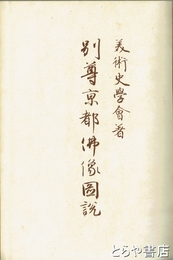 美術史學會著
別尊京都佛像圖說
とらや書店